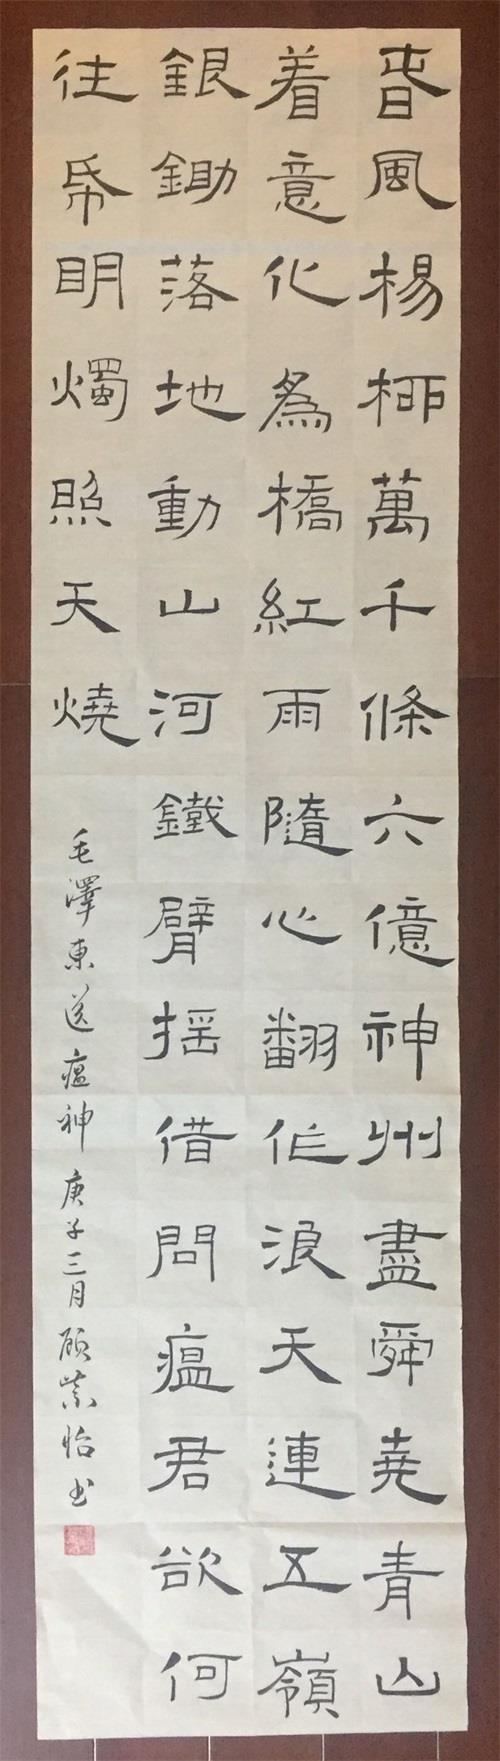 春風楊柳萬千條六億神州盡舜堯青山
着意化為橋紅雨隨心翻作浪天連五嶺
銀鋤落地動山河鐵臂摇借問瘟君欲何
往帋眀燭照天燒
毛澤東送瘟神 庚子三月 顾怡书